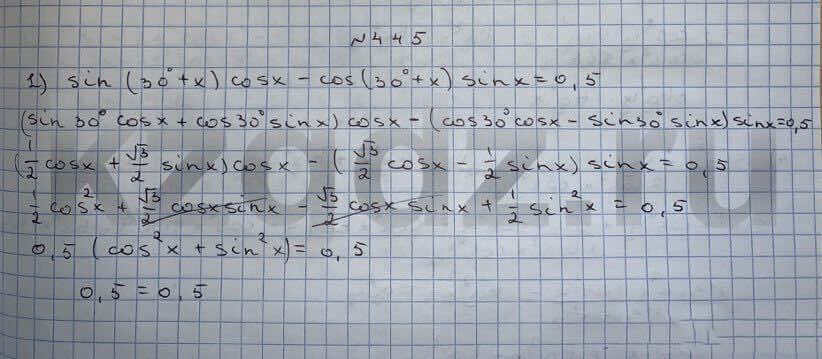 №445
1) sin (30°+x) cosx - cos(30°+x) sinx = 0,5
(sin 30° cosx + cos30° sinx) cosx - (cos30° cosx - sin30° sinx) sinx = 0,5
(1/2 cosx + √3/2 sinx) cosx - (√3/2 cosx - 1/2 sinx) sinx = 0,5
1/2 cos²x + √3/2 cosx sinx - √3/2 cosx sinx + 1/2 sin²x = 0,5
0,5 (cos²x + sin²x) = 0,5
0,5 = 0,5
kzgdz.ru